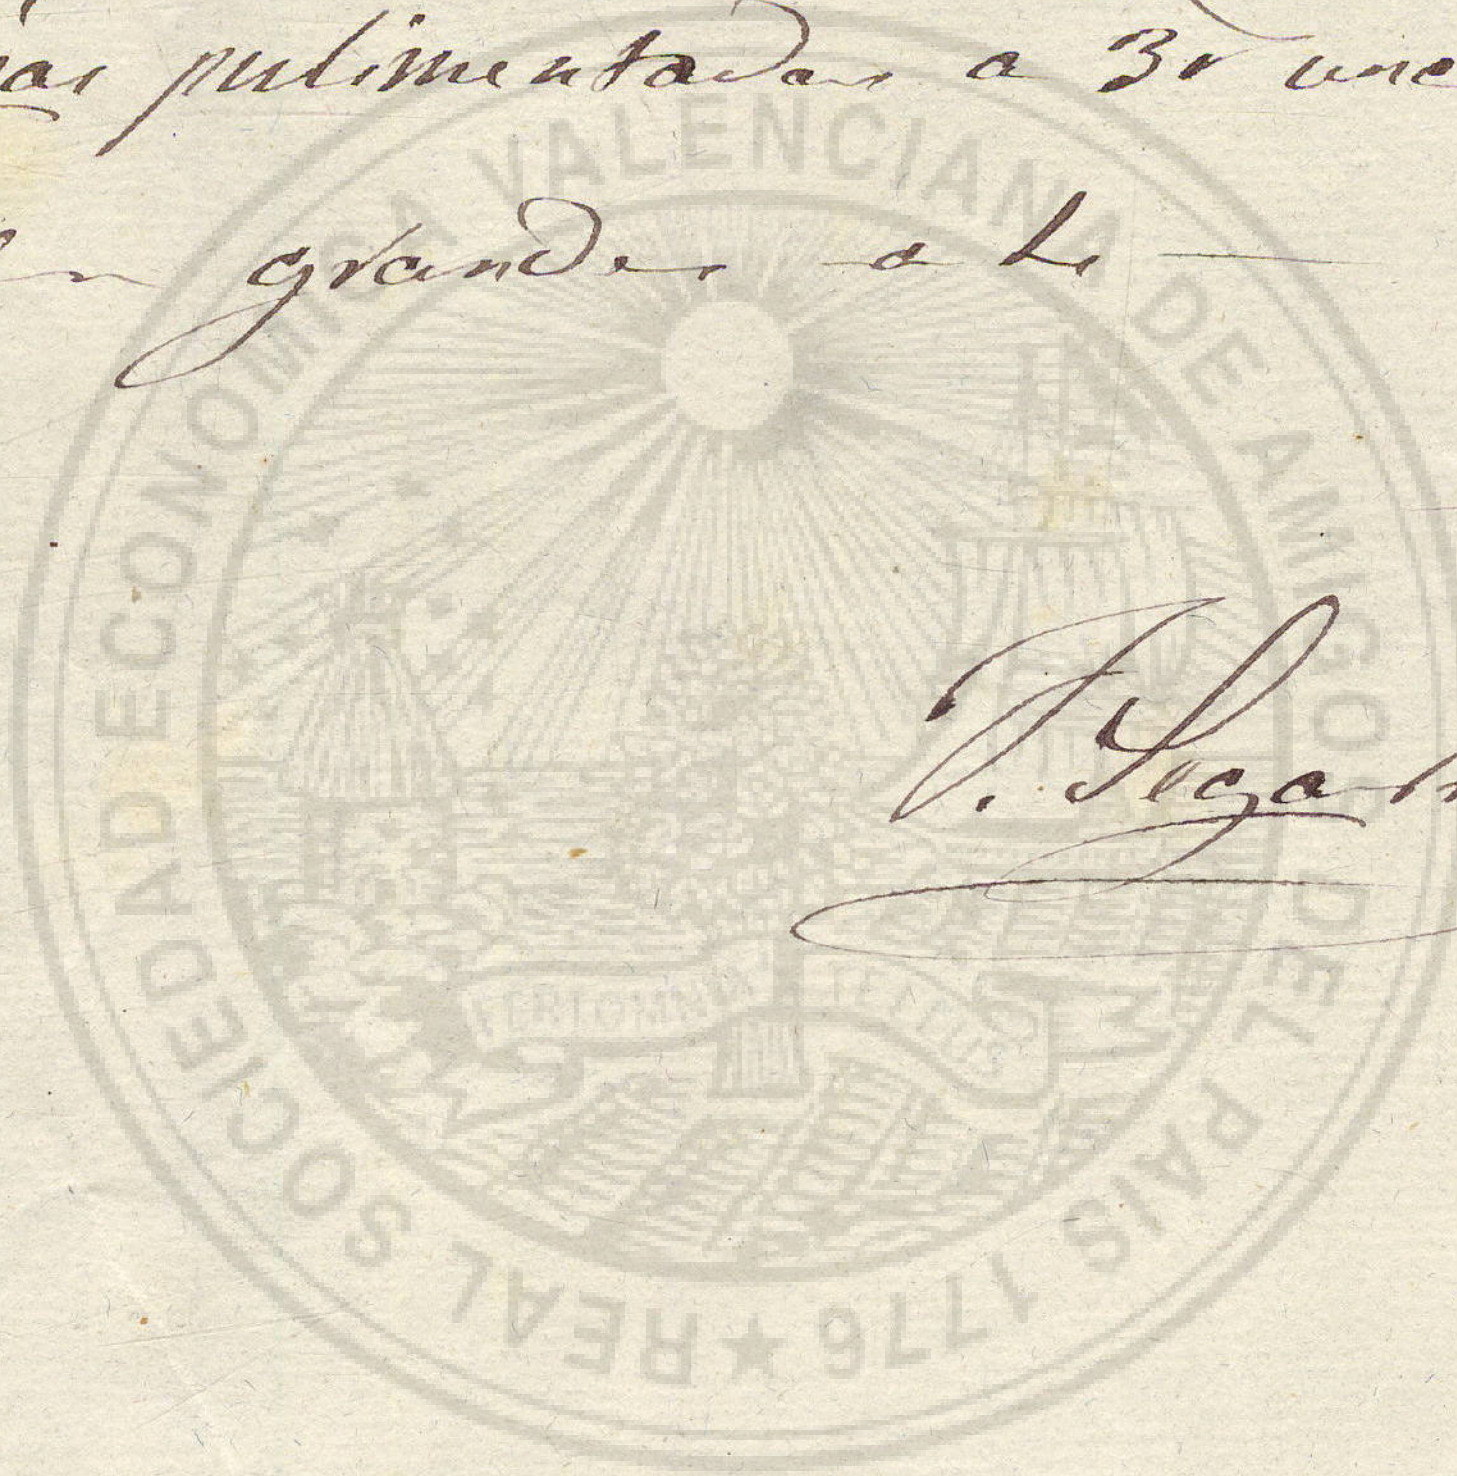 pulimentadas a 3r una
grandes a
F. Segar
REAL SOCIEDAD ECONOMICA VALENCIANA DE AMIGOS DEL PAIS 1776 ★